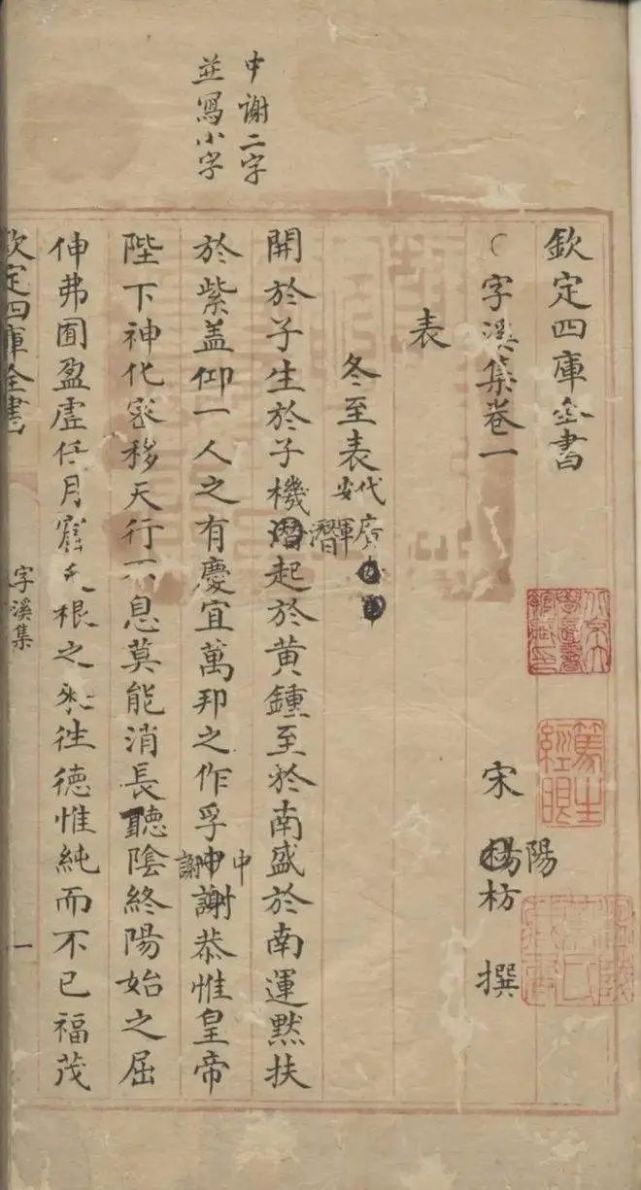 中謝二字
並寫小字
欽定四庫全書
字溪集卷一
宋 楊陽枋 撰
表
冬至表代
安
開於子生於子機潛潛起於黄鍾至於南盛於南運黙扶
於紫盖仰一人之有慶宜萬邦之作孚中謝中謝恭惟皇帝
陛下神化宻移天行不息莫能消長聽陰終陽始之屈
伸弗囿盈虚任月窟天根之來徃德惟純而不已福茂
欽定四庫全書
字溪集
一
篤生
經眼